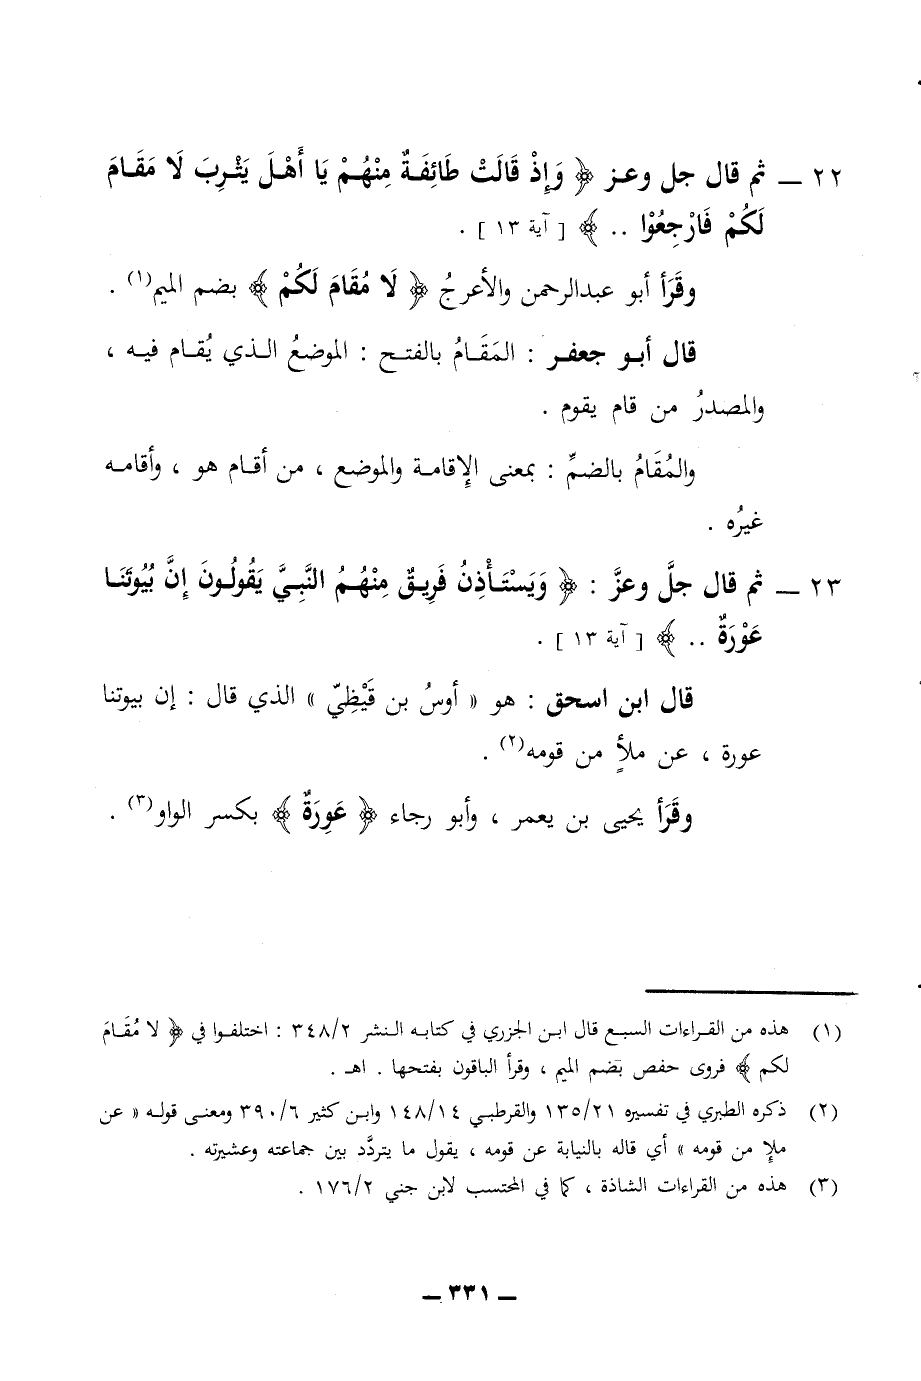 ٢٢ ــ ثم قال جل وعز ﴿ وَإِذْ قَالَتْ طَائِفَةٌ مِنْهُمْ يَا أَهْلَ يَثْرِبَ لَا مَقَامَ
لَكُمْ فَارْجِعُوْا .. ﴾ [ آية ١٣ ] .
وقَرَأ أبو عبدالرحمن والأعرجُ ﴿ لَا مُقَامَ لَكُمْ ﴾ بضم الميم(١) .
قال أبو جعفر : المَقَامُ بالفتح : الموضعُ الذي يُقام فيه ،
والمصدرُ من قام يقوم .
والمُقَامُ بالضمِّ : بمعنى الإقامة والموضع ، من أقام هو ، وأقامه
غيرُه .
٢٣ ــ ثم قال جلَّ وعزَّ : ﴿ وَيَسْتَأْذِنُ فَرِيقٌ مِنْهُمُ النَّبِيَّ يَقُولُونَ إِنَّ بُيُوتَنَا
عَوْرَةٌ .. ﴾ [ آية ١٣ ] .
قال ابن اسحق : هو « أوسُ بن قَيْظِيّ » الذي قال : إن بيوتنا
عورة ، عن ملأٍ من قومه(٢) .
وقَرَأ يحيى بن يعمر ، وأبو رجاء ﴿ عَوِرَةٌ ﴾ بكسر الواو(٣) .
(١) هذه من القراءات السبع قال ابن الجزري في كتابه النشر ٣٤٨/٢ : اختلفوا في ﴿ لا مُقَامَ
لكم ﴾ فروى حفص بضم الميم ، وقرأ الباقون بفتحها . اهـ .
(٢) ذكره الطبري في تفسيره ١٣٥/٢١ والقرطبي ١٤٨/١٤ وابن كثير ٣٩٠/٦ ومعنى قوله « عن
ملإ من قومه » أي قاله بالنيابة عن قومه ، يقول ما يتردَّد بين جماعته وعشيرته .
(٣) هذه من القراءات الشاذة ، كما في المحتسب لابن جني ١٧٦/٢ .
ــ ٣٣١ ــ